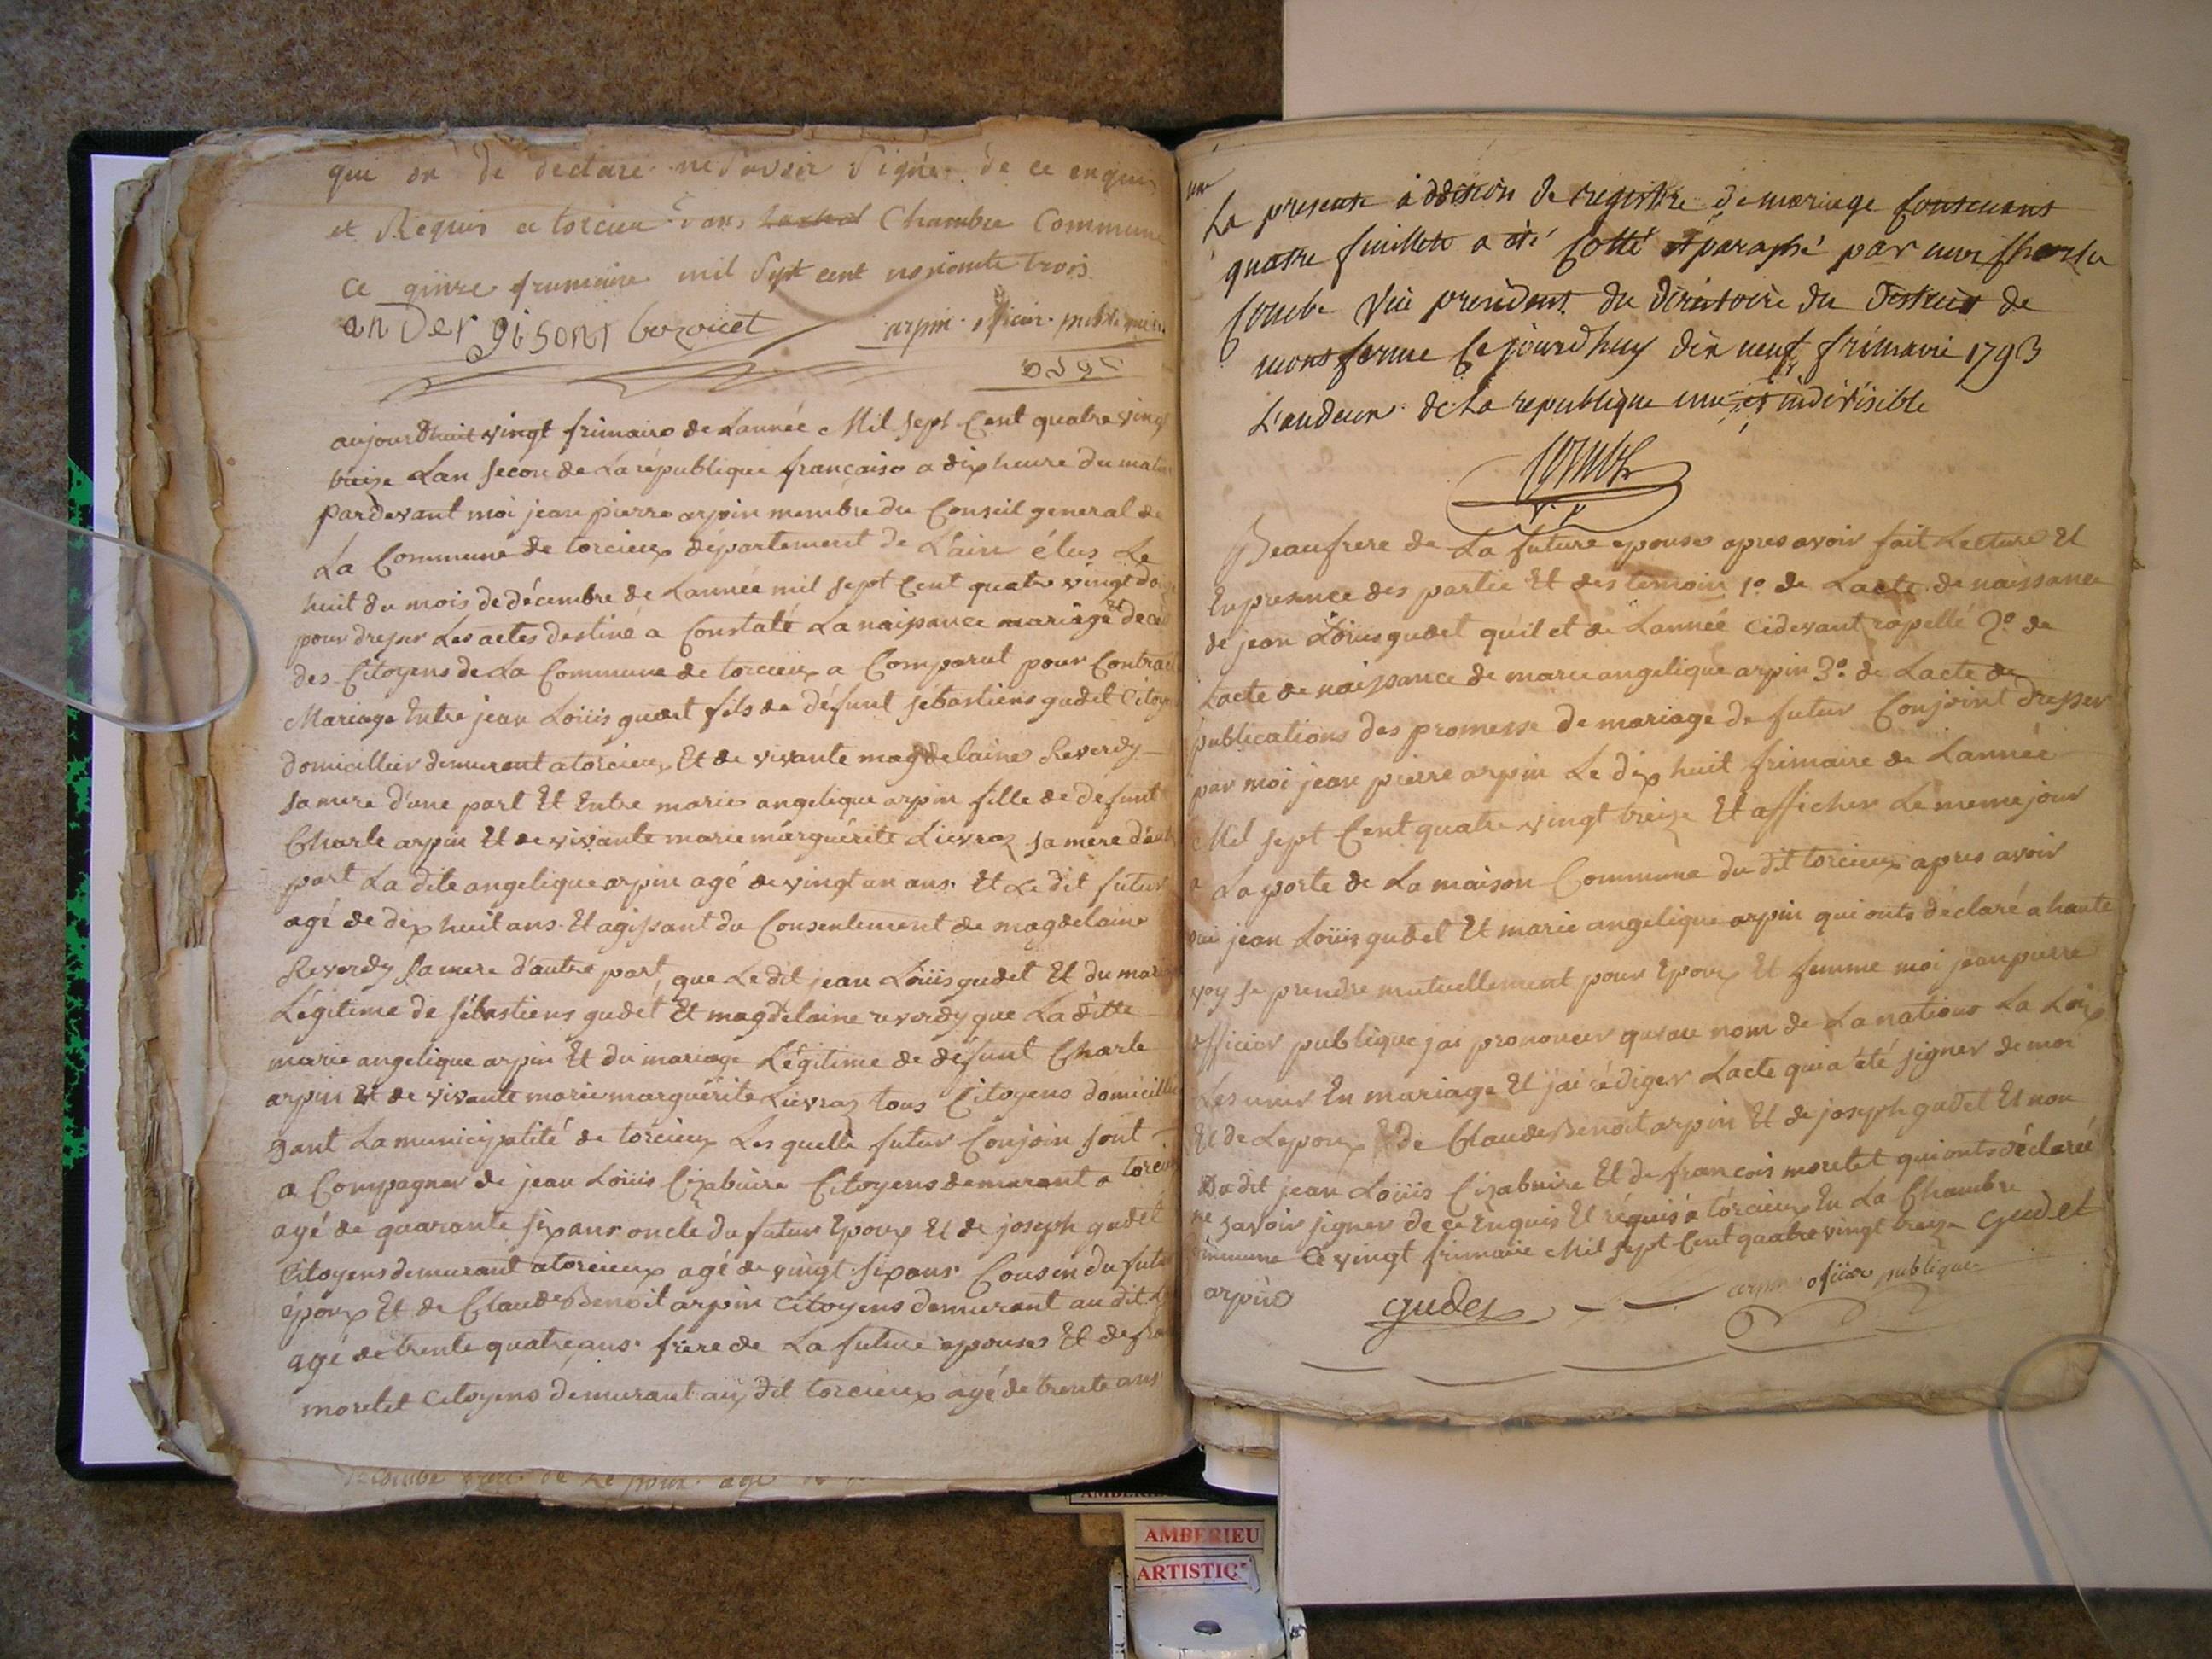 qui on de déclaré ne savoir signé de ce enquis
et Requis a torcieu dans Chambre Commune
ce quinze frumaire mil Sept cent nonionte trois
an Der gisont bozouet arpin officier publique
aujourdhuit vingt frimaire de Lannéé Mil sept Cent quatre vingt
treize Lan secon de La république française a dix heure du matin
pardevant moi jean pierre arpin membre du Conseil general de
La Commune de torcieux département de L'ain élus Le
huit du mois de décembre de Lannéé mil sept Cent quatre vingt do
pour dresser Les actes destiné a Constaté La naissance mariage Et decé
des Citoyens de La Commune de torcieux a Comparut pour Contrac
Mariage Entre jean Loüis gudet fils de défunt sébastiens gudet Citoye
domicillier demurant a torcieux Et de vivante magdelaine Reverdy
sa mere d'une part Et Entre marie angelique arpin fille de défunt
Charle arpin Et de vivante marie marguérite Lievraz sa mere d'aut
part La dite angelique arpin agé de vingt un ans. Et Le dit futur
agé de dix huit ans. Et agissant du Consentement de magdelaine
Reverdy sa mere d'autre part, que Le dit jean Loüis gudet Et du mar
Légitime de sébastiens gudet Et magdelaine reverdy que La ditte
marie angelique arpin Et du mariage Légitime de défunt Charle
arpin Et de vivante marie marguérite Lievraz tous Citoyens domicillé
dant La municipalité de torcieux Les quelle futur Conjoin sont
a Compagner de jean Loüis Cizabuire Citoyens demurant a torcieu
agé de quarante six ans oncle du futur Epoux Et de joseph gudet
Citoyens demurant a torcieux agé de vingt six ans Cousen du futu
époux Et de Claude Benoit arpin citoyens demurant au dit
agé de trente quatre ans. frere de La future epouse Et de fra
moretet citoyens demurant au dit torcieux agé de trente ans
de Le poux agé
La presente addition de registre de mariage Contenant
quatre fuillets a été Cotté et paraphé par nous Charle
Combe Vice president du directoire du District de
montferme Ce jourdhuy dix neuf frimaire 1793
L'andeux de La republique une et indivisible
Combe
V. P
Beaufrere de La future epouse apres avoir fait Lecture Et
En presence des partie Et des temoin 1º de Lacte de naissance
de jean Loüis gudet qu'il et de Lannéé cidevant rapellé 2º de
Lacte de naissance de marie angelique arpin 3º de Lacte de
publications des promesse de mariage de futur Conjoint dresser
par moi jean pierre arpin Le dix huit frimaire de Lannéé
Mil sept Cent quatre vingt treize Et afficher Le meme jour
a La porte de La maison Commune du dit torcieux apres avoir
oui jean Loüis gudet Et marie angelique arpin qui onts déclaré a haute
voy se prendre mutuellement pour Epoux Et femme moi jean pierre
officier publique jai prononcer qu'au nom de La nations La Loix
Les unir En mariage Et jai rédiger Lacte qui a été signer de moi
Et de Lepoux Et de Claude Benoit arpin Et de joseph gudet Et non
Du dit jean Loüis Cizabuire Et de françois moretet qui onts déclareé
ne savoir signer de ce Enquis Et réquis a torcieux En La Chambre
Commune Ce vingt frimaire Mil sept Cent quatre vingt treize gudet
arpin gudet arpin oficier publique
AMBERIEU
AMBERIEU
ARTISTIQ